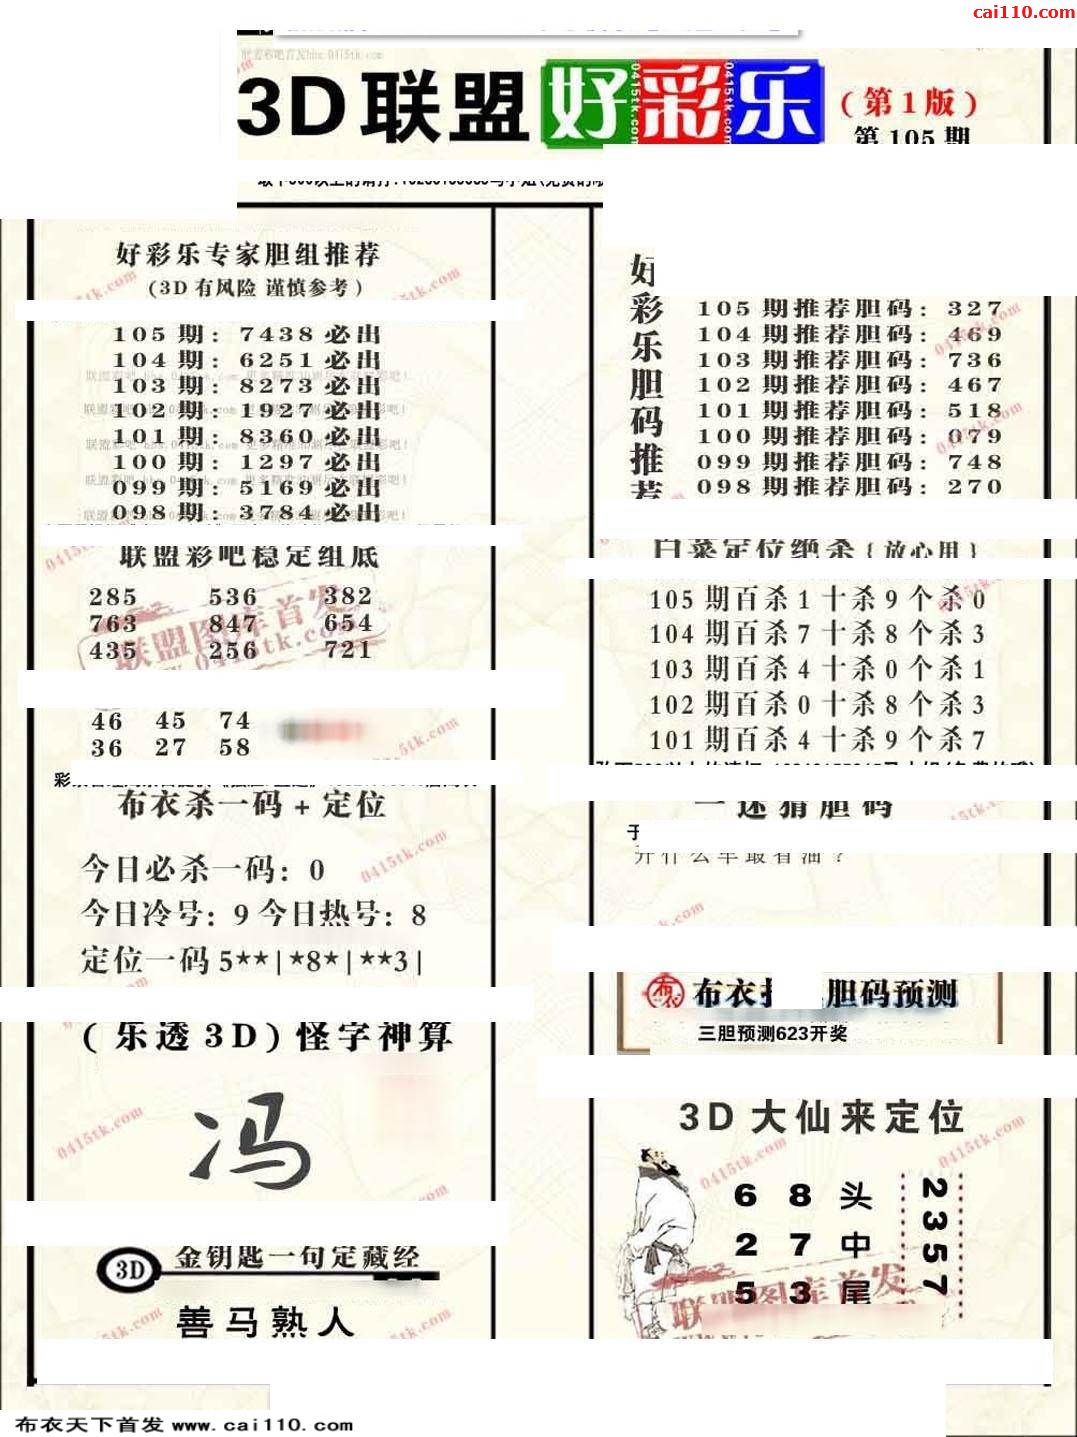 cai110.com
3D联盟好彩乐
(第1版)
第105期
好彩乐专家胆组推荐
(3D有风险 谨慎参考)
105期: 7438必出
104期: 6251必出
103期: 8273必出
102期: 1927必出
101期: 8360必出
100期: 1297必出
099期: 5169必出
098期: 3784必出
联盟彩吧稳定组底
285 536 382
763 847 654
435 256 721
46 45 74
36 27 58
布衣杀一码+定位
今日必杀一码: 0
今日冷号: 9 今日热号: 8
定位一码5**|*8*|**3|
(乐透3D)怪字神算
冯
3D 金钥匙一句定藏经
善马熟人
好彩乐胆码推荐
105期推荐胆码: 327
104期推荐胆码: 469
103期推荐胆码: 736
102期推荐胆码: 467
101期推荐胆码: 518
100期推荐胆码: 079
099期推荐胆码: 748
098期推荐胆码: 270
白菜定位绝杀{放心用}
105期百杀1十杀9个杀0
104期百杀7十杀8个杀3
103期百杀4十杀0个杀1
102期百杀0十杀8个杀3
101期百杀4十杀9个杀7
一迷猜胆码
开什么车最省油?
布衣 胆码预测
三胆预测623开奖
3D大仙来定位
6 8 头
2 7 中
5 3 尾
2357
联盟图库首发
0415tk.com
布衣天下首发 www.cai110.com